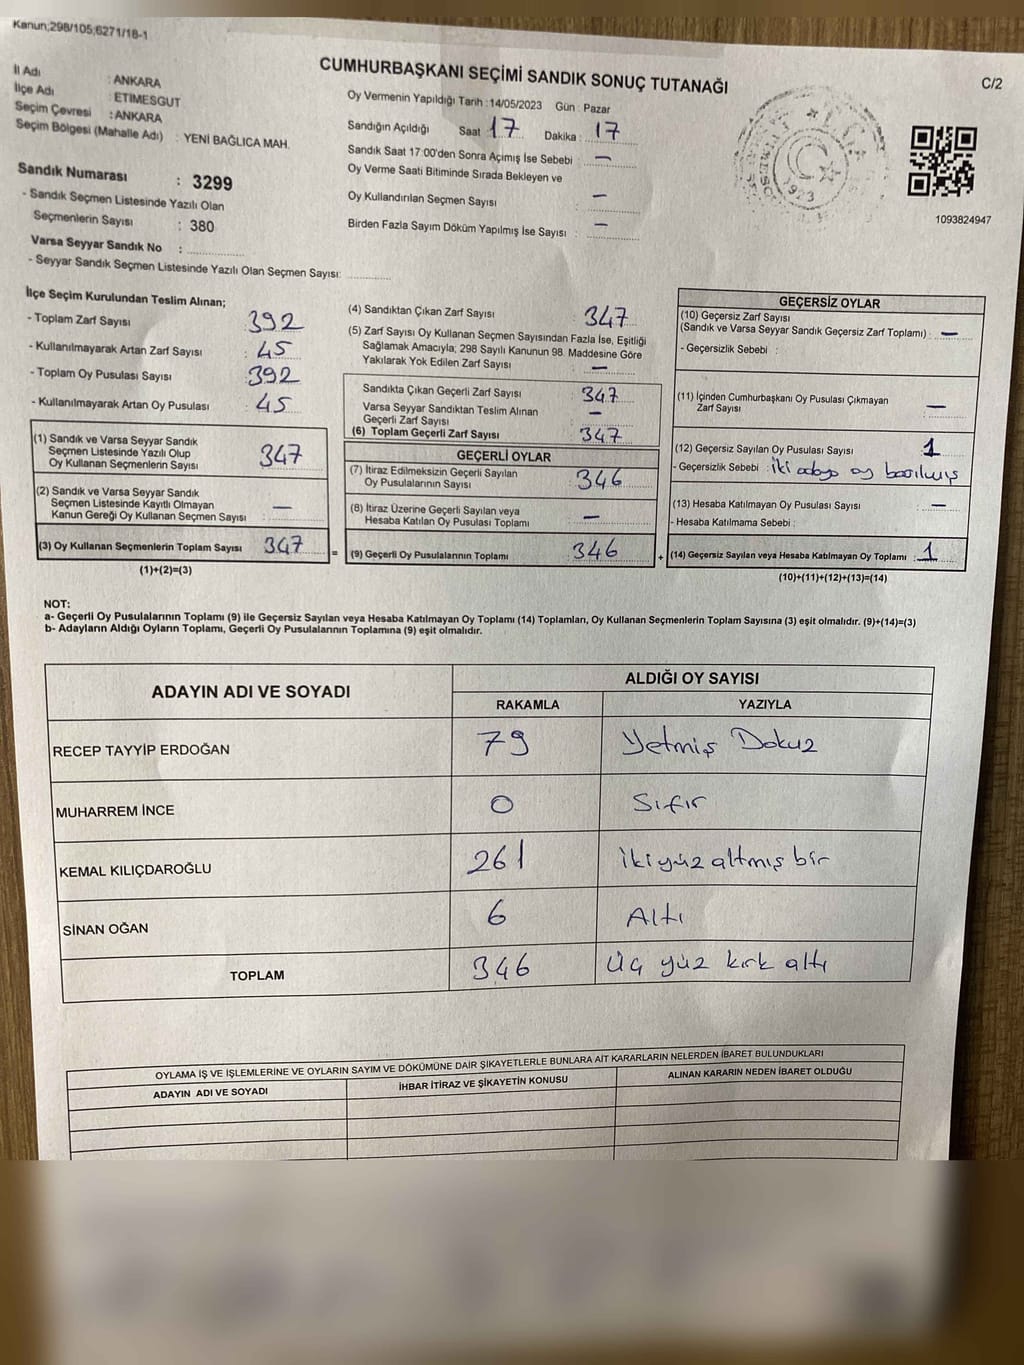 Kanun;298/105;6271/18-1
CUMHURBAŞKANI SEÇİMİ SANDIK SONUÇ TUTANAĞI
C/2
İl Adı : ANKARA
İlçe Adı : ETIMESGUT
Seçim Çevresi : ANKARA
Seçim Bölgesi (Mahalle Adı) : YENİ BAĞLICA MAH.
Sandık Numarası : 3299
- Sandık Seçmen Listesinde Yazılı Olan
Seçmenlerin Sayısı : 380
Varsa Seyyar Sandık No :
- Seyyar Sandık Seçmen Listesinde Yazılı Olan Seçmen Sayısı:
Oy Vermenin Yapıldığı Tarih : 14/05/2023 Gün : Pazar
Sandığın Açıldığı Saat 17 Dakika : 17
Sandık Saat 17:00'den Sonra Açımış İse Sebebi : —
Oy Verme Saati Bitiminde Sırada Bekleyen ve
Oy Kullandırılan Seçmen Sayısı : —
Birden Fazla Sayım Döküm Yapılmış İse Sayısı : —
1093824947
1923
İlçe Seçim Kurulundan Teslim Alınan;
- Toplam Zarf Sayısı : 392
- Kullanılmayarak Artan Zarf Sayısı : 45
- Toplam Oy Pusulası Sayısı : 392
- Kullanılmayarak Artan Oy Pusulası : 45
(1) Sandık ve Varsa Seyyar Sandık
Seçmen Listesinde Yazılı Olup
Oy Kullanan Seçmenlerin Sayısı : 347
(2) Sandık ve Varsa Seyyar Sandık
Seçmen Listesinde Kayıtlı Olmayan
Kanun Gereği Oy Kullanan Seçmen Sayısı : —
(3) Oy Kullanan Seçmenlerin Toplam Sayısı 347
(1)+(2)=(3)
=
(4) Sandıktan Çıkan Zarf Sayısı : 347
(5) Zarf Sayısı Oy Kullanan Seçmen Sayısından Fazla İse, Eşitliği
Sağlamak Amacıyla; 298 Sayılı Kanunun 98. Maddesine Göre
Yakılarak Yok Edilen Zarf Sayısı : —
Sandıkta Çıkan Geçerli Zarf Sayısı : 347
Varsa Seyyar Sandıktan Teslim Alınan
Geçerli Zarf Sayısı : —
(6) Toplam Geçerli Zarf Sayısı : 347
GEÇERLİ OYLAR
(7) İtiraz Edilmeksizin Geçerli Sayılan
Oy Pusulalarının Sayısı : 346
(8) İtiraz Üzerine Geçerli Sayılan veya
Hesaba Katılan Oy Pusulası Toplamı : —
(9) Geçerli Oy Pusulalarının Toplamı : 346
+
GEÇERSİZ OYLAR
(10) Geçersiz Zarf Sayısı
(Sandık ve Varsa Seyyar Sandık Geçersiz Zarf Toplamı) : —
- Geçersizlik Sebebi :
(11) İçinden Cumhurbaşkanı Oy Pusulası Çıkmayan
Zarf Sayısı : —
(12) Geçersiz Sayılan Oy Pusulası Sayısı : 1
- Geçersizlik Sebebi : İki adaya oy basılmış
(13) Hesaba Katılmayan Oy Pusulası Sayısı : —
- Hesaba Katılmama Sebebi :
(14) Geçersiz Sayılan veya Hesaba Katılmayan Oy Toplamı : 1
(10)+(11)+(12)+(13)=(14)
NOT:
a- Geçerli Oy Pusulalarının Toplamı (9) ile Geçersiz Sayılan veya Hesaba Katılmayan Oy Toplamı (14) Toplamları, Oy Kullanan Seçmenlerin Toplam Sayısına (3) eşit olmalıdır. (9)+(14)=(3)
b- Adayların Aldığı Oyların Toplamı, Geçerli Oy Pusulalarının Toplamına (9) eşit olmalıdır.
ADAYIN ADI VE SOYADI
ALDIĞI OY SAYISI
RAKAMLA YAZIYLA
RECEP TAYYİP ERDOĞAN 79 Yetmiş Dokuz
MUHARREM İNCE 0 Sıfır
KEMAL KILIÇDAROĞLU 261 ikiyüz altmış bir
SİNAN OĞAN 6 Altı
TOPLAM 346 Üç yüz kırk altı
OYLAMA İŞ VE İŞLEMLERİNE VE OYLARIN SAYIM VE DÖKÜMÜNE DAİR ŞİKAYETLERLE BUNLARA AİT KARARLARIN NELERDEN İBARET BULUNDUKLARI
ADAYIN ADI VE SOYADI İHBAR İTİRAZ VE ŞİKAYETİN KONUSU ALINAN KARARIN NEDEN İBARET OLDUĞU